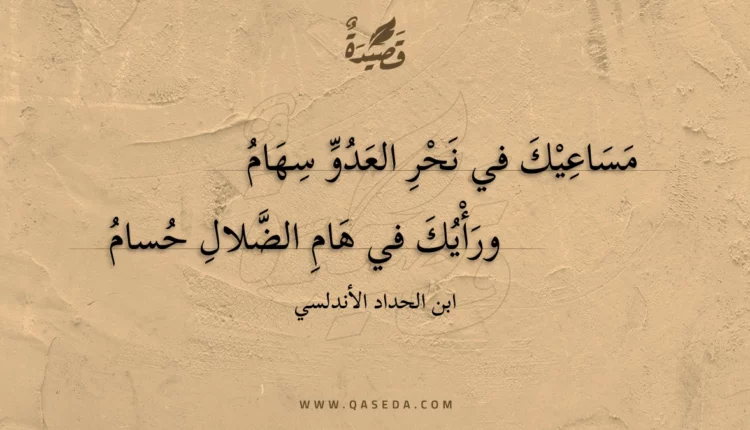 قَصِيْدَةٌ
مَسَاعِيْكَ في نَحْرِ العَدُوِّ سِهَامُ
ورَأْيُكَ في هَامِ الضَّلالِ حُسامُ
ابن الحداد الأندلسي
WWW.QASEDA.COM